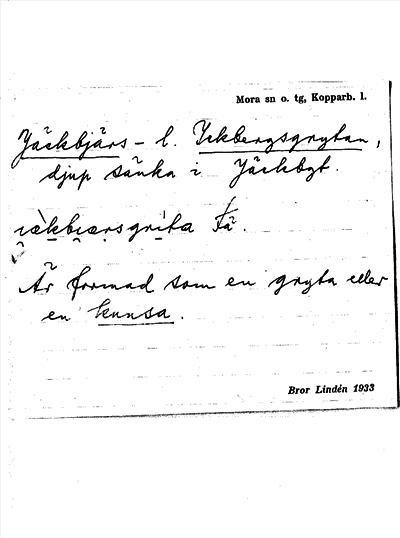 Mora sn o. tg, Kopparb. l.
Jäckbjärs- l. Ickbergsgrytan,
djup sänka i Jäckbgt.
Är formad som en gryta eller
en kunsa.
Bror Lindén 1933